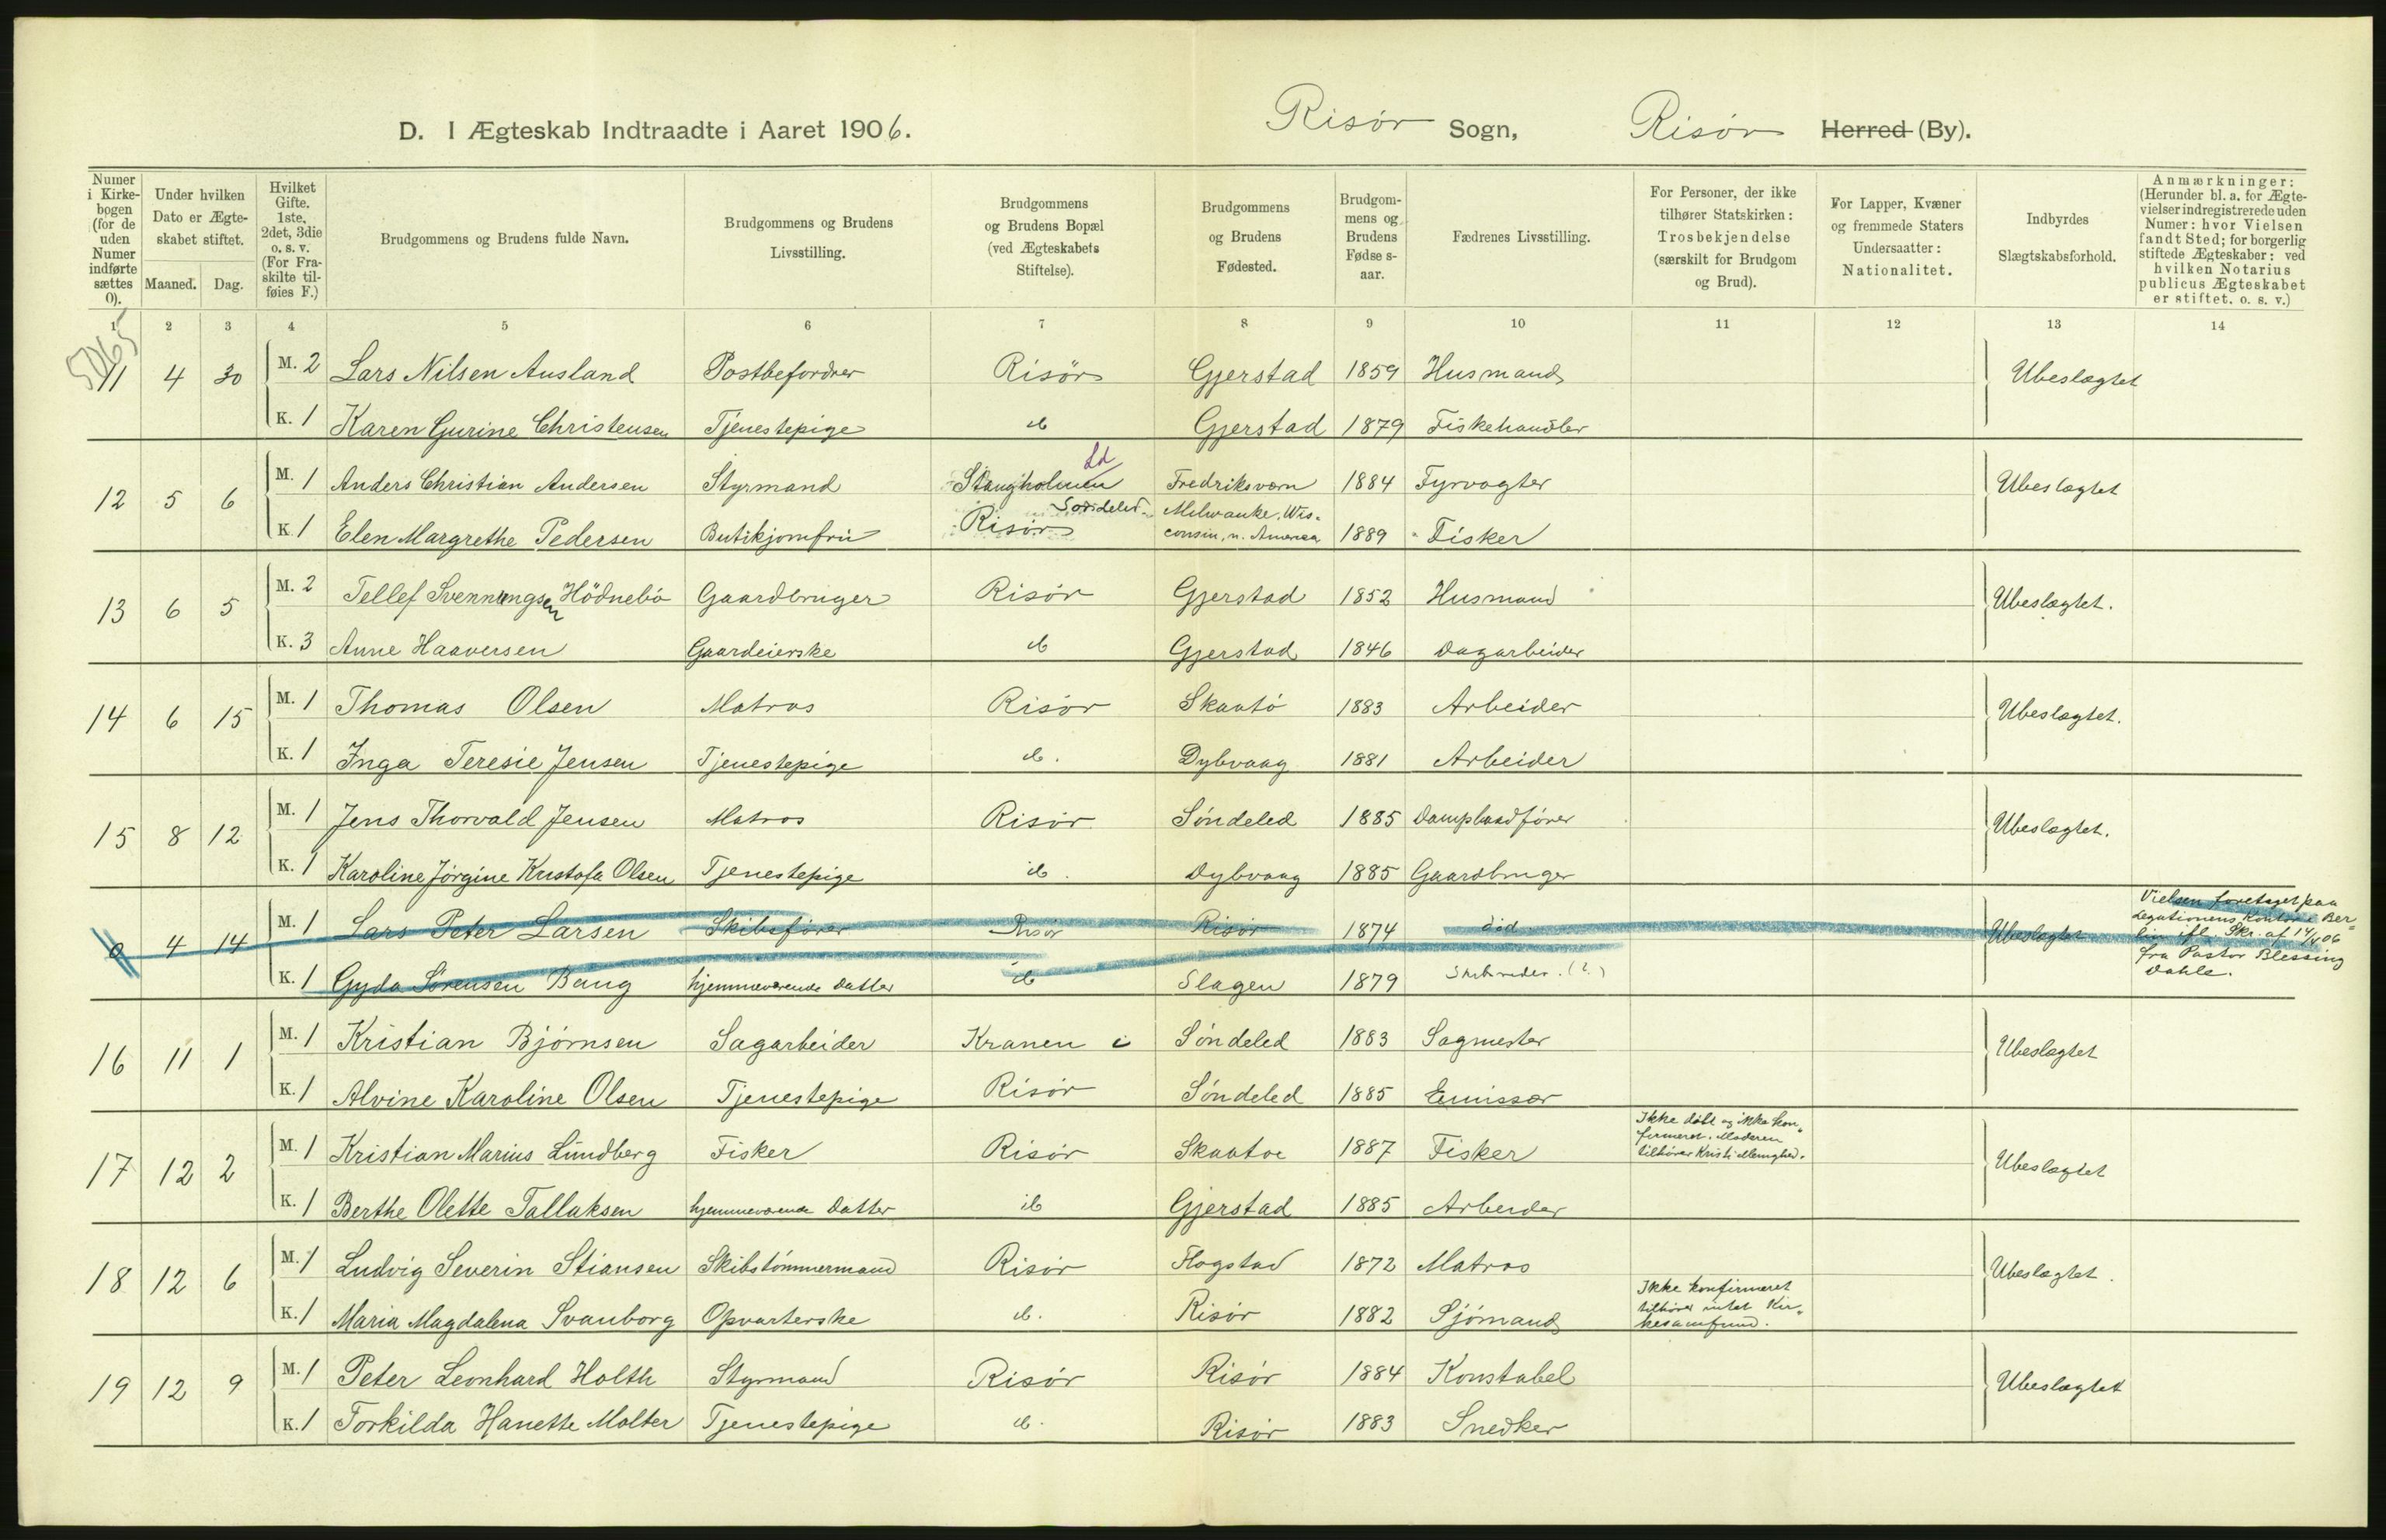 D. I Ægteskab Indtraadte i Aaret 1906. Risör Sogn, Risör Herred (By).
Numer i Kirkebogen (for de uden Numer indførte sættes 0).
Under hvilken Dato er Ægteskabet stiftet.
Maaned. Dag.
Hvilket Gifte. 1ste, 2det, 3die o. s. v. (For Fraskilte tilføies F.)
Brudgommens og Brudens fulde Navn.
Brudgommens og Brudens Livsstilling.
Brudgommens og Brudens Bopæl (ved Ægteskabets Stiftelse).
Brudgommens og Brudens Fødested.
Brudgommens og Brudens Fødselsaar.
Fædrenes Livsstilling.
For Personer, der ikke tilhører Statskirken: Trosbekjendelse (særskilt for Brudgom og Brud).
For Lapper, Kvæner og fremmede Staters Undersaatter: Nationalitet.
Indbyrdes Slægtskabsforhold.
Anmærkninger: (Herunder bl. a. for Ægtevielser indregistrerede uden Numer: hvor Vielsen fandt Sted; for borgerlig stiftede Ægteskaber: ved hvilken Notarius publicus Ægteskabet er stiftet. o. s. v.)
1 2 3 4 5 6 7 8 9 10 11 12 13 14
11 4 30 M. 2 Lars Nilsen Ausland Postbefordrer Risör Gjerstad 1859 Husmand Ubeslægtet
K. 1 Karen Gurine Christensen Tjenestepige ib Gjerstad 1879 Fiskehandler
Ld
12 5 6 M. 1 Anders Christian Andersen Styrmand Stangholmen Söndeled Fredriksværn 1884 Fyrvogter Ubeslægtet
K. 1 Elen Margrethe Pedersen Butikjomfru Risör Milwauke, Wisconsin, n. America 1889 Fisker
13 6 5 M. 2 Tellef Svenningsen Hödnebö Gaardbruger Risör Gjerstad 1852 Husmand Ubeslægtet.
K. 3 Anne Haaversen Gaardeierske ib Gjerstad 1846 Dagarbeider
14 6 15 M. 1 Thomas Olsen Matros Risör Skaatö 1883 Arbeider Ubeslægtet.
K. 1 Inga Teresie Jensen Tjenestepige ib. Dybvaag 1881 Arbeider
15 8 12 M. 1 Jens Thorvald Jensen Matros Risör Söndeled 1885 Dampbaadförer Ubeslægtet.
K. 1 Karoline Jörgine Kristofa Olsen Tjenestepige ib. Dybvaag 1885 Gaardbruger
0 4 14 M. 1 Lars Peter Larsen Skibsförer Risör Risör 1874 död Ubeslægtet Vielsen foretaget paa Legationens Kontor i Berlin ifl. Skr. af 14/4 06 fra Pastor Blessing Dahle.
K. 1 Gyda Sörensen Bang hjemmeværende Datter ib Slagen 1879 Skibsreder. (?)
16 11 1 M. 1 Kristian Björnsen Sagarbeider Kranen i Söndeled 1883 Sagmester Ubeslægtet
K. 1 Alvine Karoline Olsen Tjenestepige Risör Söndeled 1885 Emissær
17 12 2 M. 1 Kristian Marius Lundberg Fisker Risör Skaatöe 1887 Fisker Ikke döbt og ikke konfirmeret. Moderen tilhörer Kristi Menighed. Ubeslægtet
K. 1 Berthe Olette Tallaksen hjemmeværende Datter ib Gjerstad 1885 Arbeider
18 12 6 M. 1 Ludvig Severin Stiansen Skibstömmermand Risör Flogstad 1872 Matros Ubeslægtet.
K. 1 Maria Magdalena Svanborg Opvarterske ib. Risör 1882 Sjömand Ikke konfirmeret tilhörer intet Kirkesamfund.
19 12 9 M. 1 Peter Leonhard Holth Styrmand Risör Risör 1884 Konstabel Ubeslægtet
K. 1 Torkilda Hanette Molter Tjenestepige ib. Risör 1883 Snedker